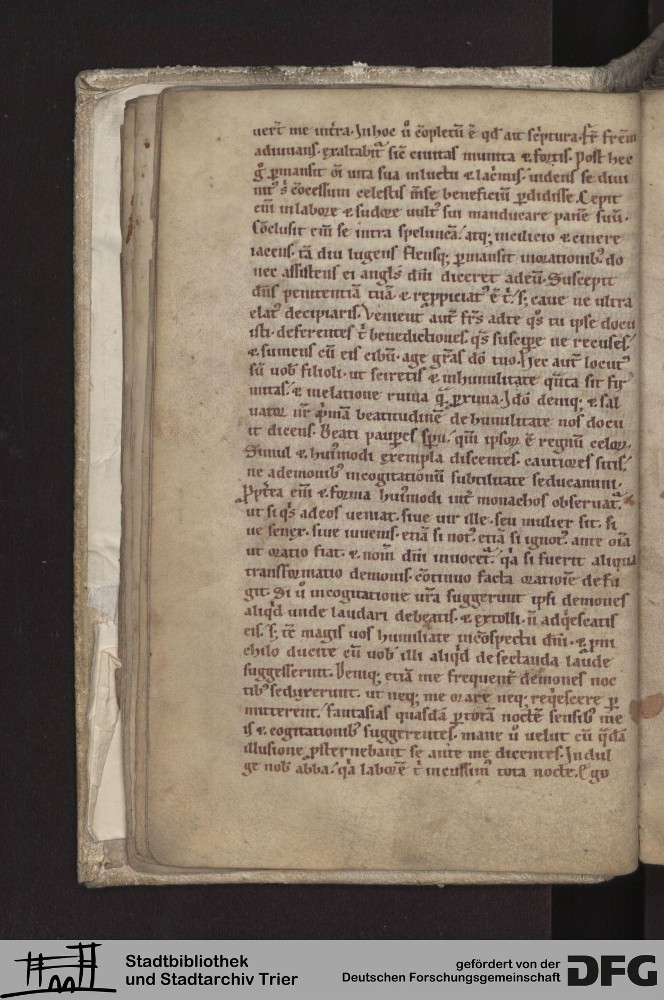 uert̄ me intra. In hoc ů cōpletū ē qd̄ ait sc̄ptura. fr̄ frēm
adiuuans. exaltabit᷒ sic̄ ciuitas munita ⁊ fortis. Post hec
g̊ ꝑmansit om̄i uita sua in luctu ⁊ lac̄mis. uidens se diui
nit᷒ s concessum celestis mēse beneficiū ꝑdidisse. Cepit
eni᷒ in labore ⁊ sudore uult᷒ sui manducare panē suū.
Cōclusit eni᷒ se intra speluncā. atq; in cilicio ⁊ cinere
iacens. tā diu lugens flensq; ꝑmansit in orationib᷒. do
nec assistens ei angls̄ dn̄i diceret ad eū. Suscepit
dn̄s penitentiā tuā. ⁊ reppiciat᷒ ē t̄. s; caue ne ultra
elat᷒ decipiaris. Venient aut̄ fr̄s ad te q̊s tu ipse docu
isti. deferentes t̄ benedictiones. q̊s suscipe ne recuses.
⁊ sumens cū eis cibū. age gr̄as dō tuo. Hec aut̄ locut᷒
sū uob᷒ filioli. ut sciretis ⁊ in humilitate q̄nta sit fir
mitas. ⁊ in elatione ruina q̄ proxima. Idō deniq; ⁊ sal
uator nr̄ p̄mā beatitudinē de humilitate nos docu
it dicens. Beati pauꝑes sp̄u. qm̄ ipsoꝝ ē regnū celoꝝ.
Simul ⁊ hui᷒modi exempla discentes. cautiores sitis.
ne a demonib᷒ in cogitationū subtilitate seducamini.
Ꝓpt̄ea eni᷒ ⁊ forma hui᷒modi int̄ monachos obseruat᷒.
ut si q̊s ad eos ueniat. siue uir ille. seu mulier sit. si
ue senex. siue iuuenis. etiā si not᷒. etiā si ignot᷒. ante oīa
ut oratio fiat. ⁊ nom̄ dn̄i inuocet᷒. q̊a si fuerit aliqua
transformatio demonis. cōtinuo facta oratiōe defu
git. Si ů in cogitatione ur̄a suggerunt ipsi demones
aliqd̄ unde laudari debeatis. ⁊ extolli. n̄ adq̊escatis
eis. s; tc̄ magis uos humiliate in cōspectu dn̄i. ⁊ ꝓ ni
chilo ducite cū uob᷒ illi aliqd̄ de sectanda laude
suggesserint. Deniq; etiā me frequent̄ demones noc
tib᷒ seduxerunt. ut neq; me orare neq; req̊escere ꝑ
mitterent. fantasias quasdā ꝑ totā noctē sensib᷒ me
is ⁊ cogitationib᷒ suggerentes. mane ů uelut cū q̊dā
illusione ꝓsternebant se ante me dicentes. Indul
ge nob᷒ abba. q̊a laborē t̄ incussim᷒ tota nocte. Ego
Stadtbibliothek
und Stadtarchiv Trier
gefördert von der
Deutschen Forschungsgemeinschaft
DFG